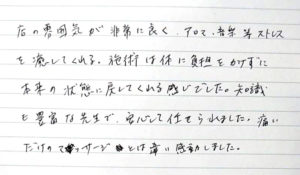 店の雰囲気が非常に良く、アロマ、音楽等ストレス
を癒してくれる。施術は体に負担をかけずに
本来の状態に戻してくれる感じでした。知識
も豊富な先生で、安心して任せられました。痛い
だけのマッサージとは違い感動しました。